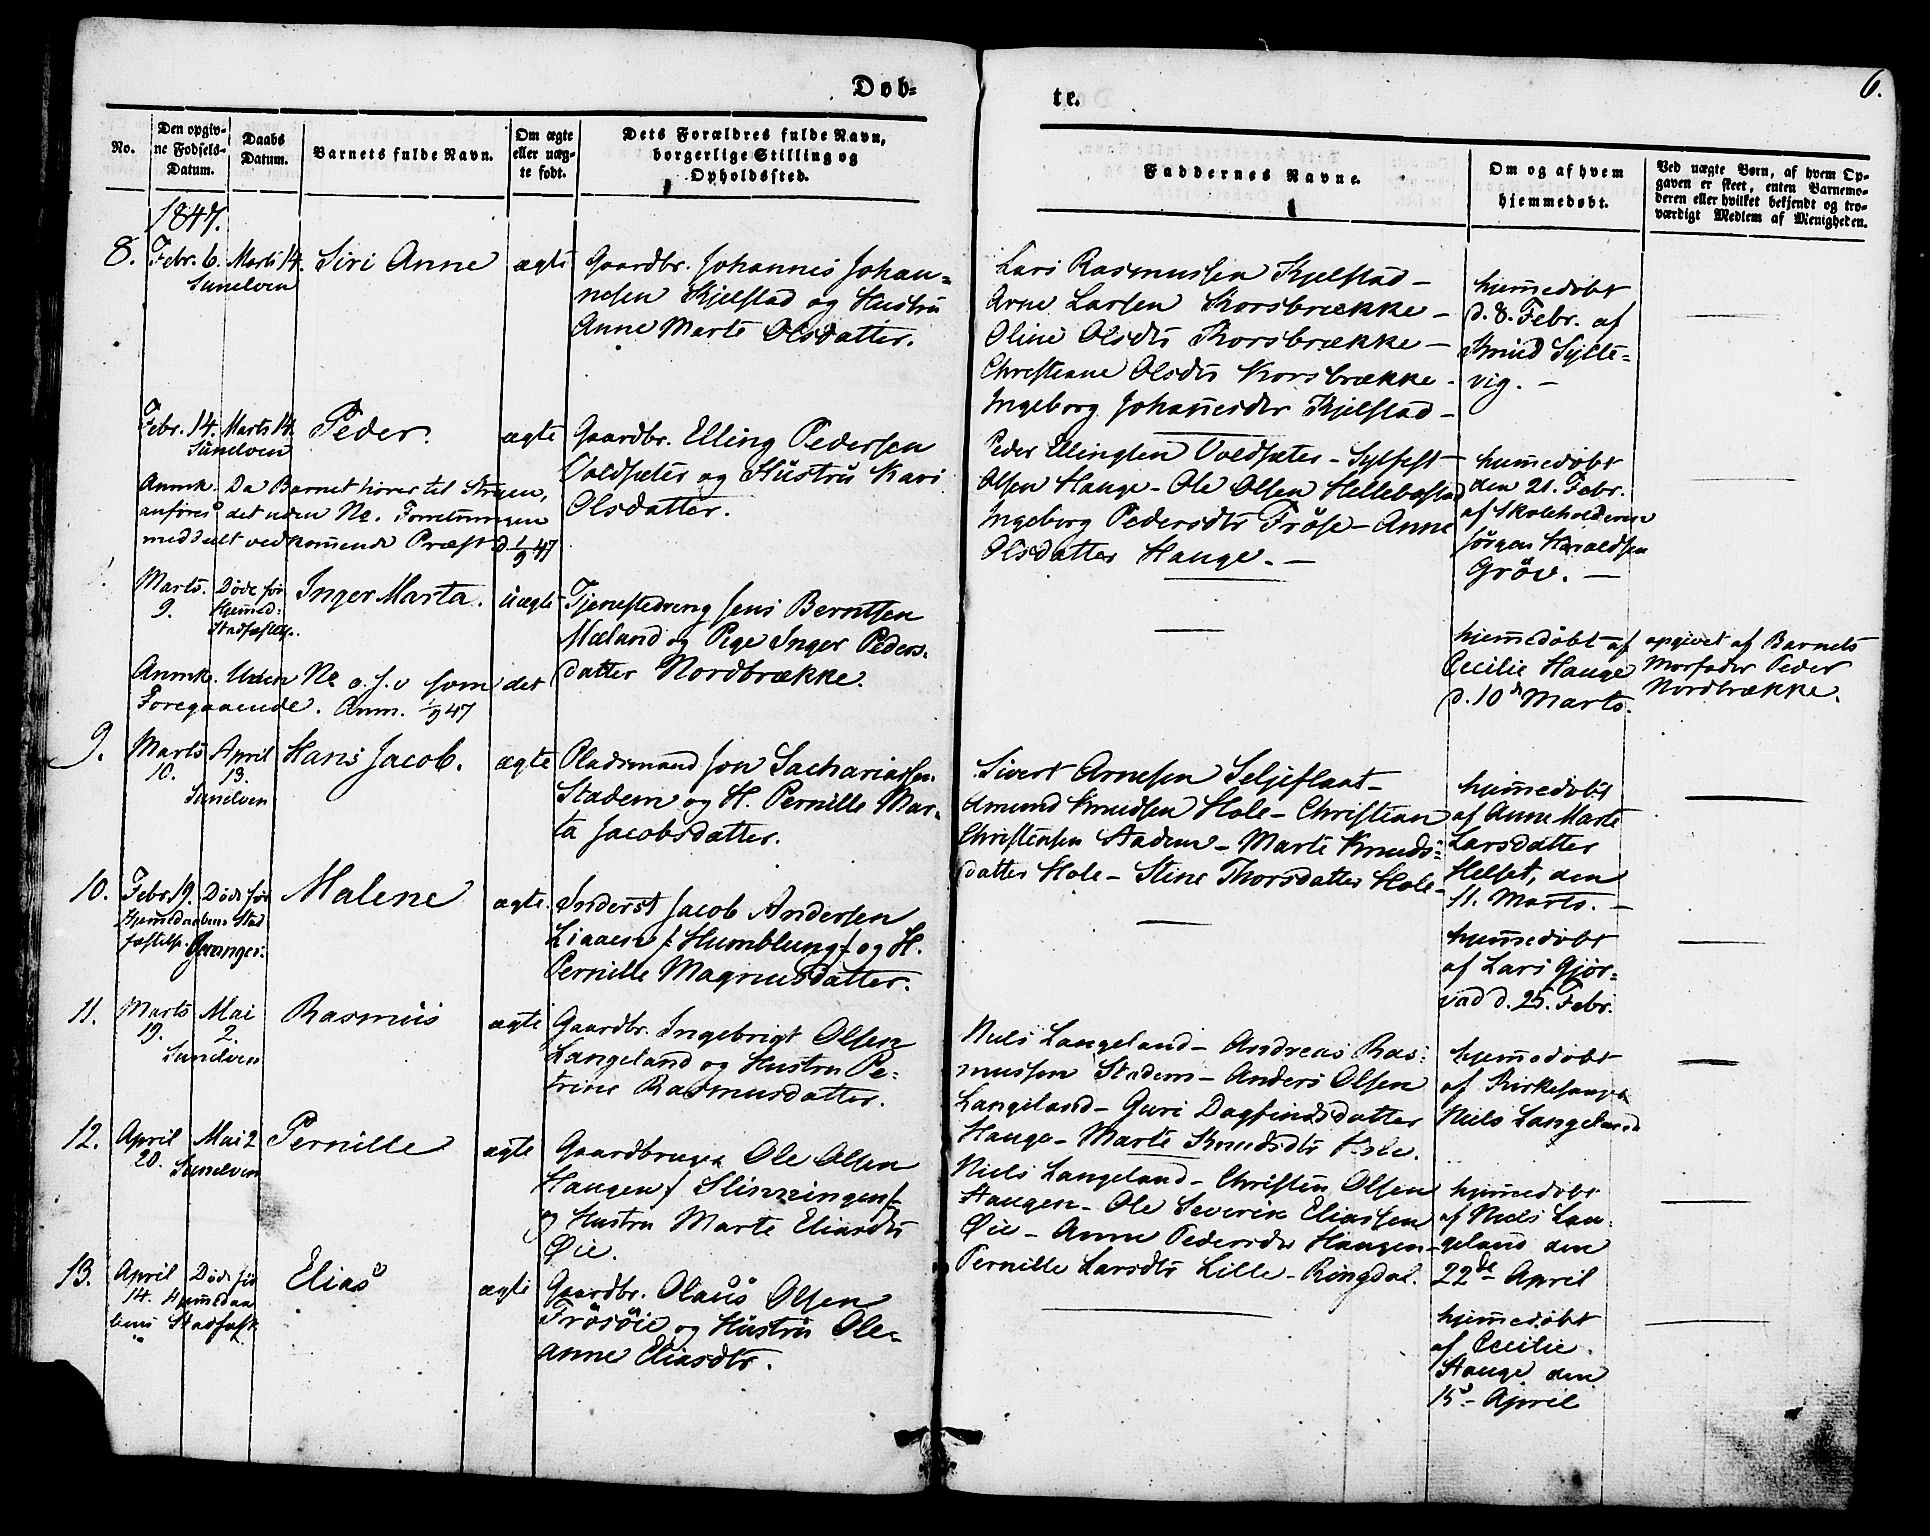 Døb-
te.
6.
No.
Den opgiv-
ne Fødsels-
Datum.
Daabs
Datum.
Barnets fulde Navn.
Om ægte
eller uæg-
te født.
Dets Forældres fulde Navn,
borgerlige Stilling og
Opholdssted.
Faddernes Navne.
Om og af hvem
hjemmedøbt.
Ved uægte Børn, af hvem Op-
gaven er skeet, enten Barnemo-
deren eller hvilket bekjendt og tro-
værdigt Medlem af Menigheden.
1847.
8.
Febr. 6.
Marts 14.
Sunelven
Siri Anne
ægte
Gaardbr. Johannes Johan-
nesen Kjelstad og Hustru
Anne Marte Olsdatter.
Lars Rasmussen Kjelstad –
Arne Larsen Korsbrække –
Oline Olsdtr Korsbrække –
Christiane Olsdtr Korsbrække –
Ingeborg Johannesdtr Kjelstad –
hjemedøbt
d. 8. Febr. af
Knud Sylte-
vig. –
Febr. 14.
Marts 14.
Sunelven
Peder.
ægte
Gaardbr. Elling Pedersen
Voldsæter og Hustru Kari
Olsdatter.
Peder Ellingsen Voldsæter – Sylfest
Olsen Hauge – Ole Olsen Hellebostad
Ingeborg Pedersdtr Frøse – Anne
Olsdatter Hauge. –
hjemedøbt
den 21. Febr.
af Skoleholderen
Jørgen Haraldsen
Grøv. –
Anmk. Da Barnet hører til Stryen,
anføres det uden No. Forretningen
meddeelt vedkommende Præst d. 1/9 47
Marts.
9.
Døde før
Hjemed:
Stadfæstelse.
Inger Marta.
uægte
Tjenestedreng Jens Berntsen
Mæland og Pige Inger Peders-
datter Nordbrække.
hjemedøbt af
Cecilie Hauge
d. 10de Marts.
opgivet af Barnets
Morfader Peder
Nordbrække.
Anmk. Uden No o.s.v som det
Foregaaende. Anm. 1/9 47
9.
Marts
10.
April
13.
Sunelven
Hans Jacob.
ægte
Pladsmand Jon Sachariassen
Stadem og H. Pernille Mar-
ta Jacobsdatter.
Sivert Arnesen Seljeflaat –
Amund Knudsen Hole – Christian
Christensen Stadem – Marte Knuds-
datter Hole – Stine Thorsdatter Hole –
hjemedøbt
af Anne Marte
Larsdatter
Hellset, den
11. Marts. –
10.
Febr 19.
Døde før
Hjemedaabens Stad
fæstelse. Geranger.
Malene
ægte.
Inderst Jacob Andersen
Liaaen /: Humblung /: og H.
Pernille Magnusdatter.
hjemedøbt
af Lars Gjør-
vad d. 25. Febr.
11.
Marts
19.
Mai
2.
Sunelven
Rasmus
ægte
Gaardbr. Ingebrigt Olsen
Langeland og Hustru Pe-
trine Rasmusdatter.
Niels Langeland – Andreas Ras-
mussen Stadem – Anders Olsen
Langeland – Guri Dagfindsdatter
Hauge – Marte Knudsdtr Hole.
hjemedøbt
af Kirkesanger
Niels Langeland
12.
April
20.
Mai 2
Sunelven
Pernille
ægte
Gaardbruger Ole Olsen
Haugen / Slinningen /
og Hustru Marte Eliasdtr
Øie.
Niels Langeland – Christen Olsen
Haugen – Ole Severin Eliassen
Øie – Anne Pedersdtr Haugen –
Pernille Larsdtr Lille-Ringdal.
hjemedøbt
af Niels Lan-
geland den
22de April
13.
April
14.
Døde før
Hjemedaa
bens Stadfæst
Elias
ægte
Gaardbr. Olaus Olsen
Frøsøie og Hustru Ole-
anne Eliasdtr.
hjemedøbt
af Cecilie
Hauge den
15de April